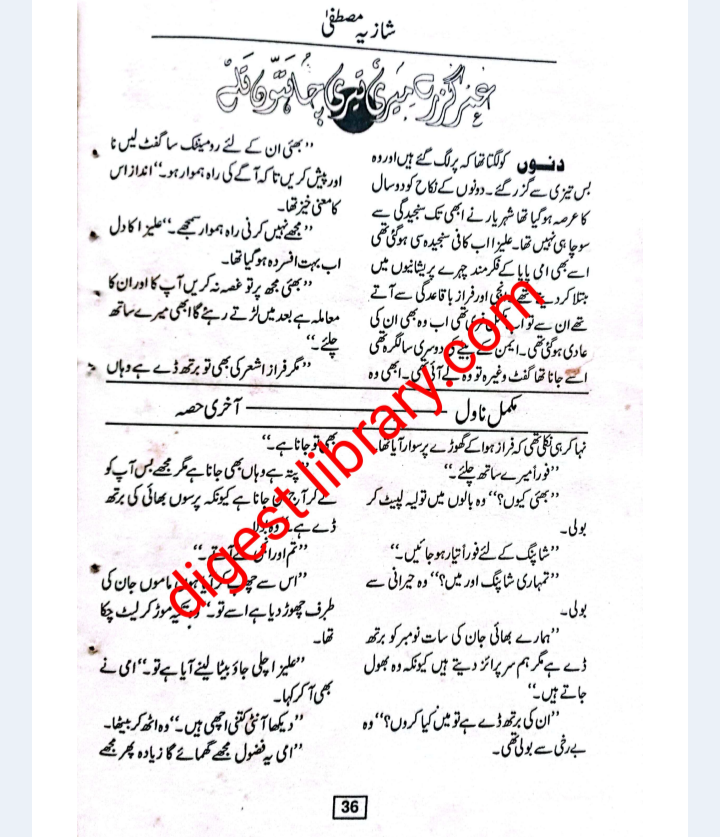 شازیہ مصطفیٰ
عمر گزرے میری تیری چاہتوں تلے
دنوں کو لگتا تھا کہ پر لگ گئے ہیں اور وہ
بس تیزی سے گزر گئے۔ دونوں کے نکاح کو دو سال
کا عرصہ ہوگیا تھا شہریار نے ابھی تک سنجیدگی سے
سوچا ہی نہیں تھا۔ علیزا اب کافی سنجیدہ سی ہوگئی تھی
اسے بھی امی پاپا کے فکر مند چہرے پریشانیوں میں
مبتلا کر دیتے تھے اور فراز باقاعدگی سے آتے
تھے ان سے تو اب تھی اب وہ بھی ان کی
عادی ہوگئی تھی۔ ایمن کے بیٹے کی دوسری سالگرہ تھی
اسے جانا تھا گفٹ وغیرہ تو وہ لے آئی تھی۔ ابھی وہ
’’بھئی ان کے لئے رومینٹک سا گفٹ لیں نا
اور پیش کریں تاکہ آگے کی راہ ہموار ہو۔‘‘ انداز اس
کا معنی خیز تھا۔
’’مجھے نہیں کرنی راہ ہموار سمجھے۔‘‘ علیزا کا دل
اب بہت افسردہ ہوگیا تھا۔
’’بھئی مجھ پر تو غصہ نہ کریں آپ کا اور ان کا
معاملہ ہے بعد میں لڑتے رہئے گا ابھی میرے ساتھ
چلئے۔‘‘
’’مگر فراز اشعر کی بھی تو برتھ ڈے ہے وہاں
مکمل ناول ——— آخری حصہ
نہا کر ہی نکلی تھی کہ فراز ہوا کے گھوڑے پر سوار آیا تھا۔
’’فوراً میرے ساتھ چلئے۔‘‘
’’بھئی کیوں؟‘‘ وہ بالوں میں تولیہ لپیٹ کر
بولی۔
’’شاپنگ کے لئے فوراً تیار ہو جائیں۔‘‘
’’تمہاری شاپنگ اور میں؟‘‘ وہ حیرانی سے
بولی۔
’’ہمارے بھائی جان کی سات نومبر کو برتھ
ڈے ہے مگر ہم سرپرائز دیتے ہیں کیونکہ وہ بھول
جاتے ہیں۔‘‘
’’ان کی برتھ ڈے ہے تو میں کیا کروں؟‘‘ وہ
بے رخی سے بولی تھی۔
بھی تو جانا ہے۔‘‘
’’پتہ ہے وہاں بھی جانا ہے مگر مجھے بس آپ کو
لے کر آج ہی جانا ہے کیونکہ پرسوں بھائی کی برتھ
ڈے ہے۔‘‘ وہ بولا۔
’’تم اور لے آتے۔‘‘
’’اس سے چھپ کر آیا ہوں ماموں جان کی
طرف چھوڑ دیا ہے اسے تو۔‘‘ وہ تکیہ موڑ کر لیٹ چکا
تھا۔
’’علیزا چلی جاؤ بیٹا لینے آیا ہے تو۔‘‘ امی نے
بھی آ کر کہا۔
’’دیکھا آنٹی کتنی اچھی ہیں۔‘‘ وہ اٹھ کر بیٹھا۔
’’امی یہ فضول مجھے گھمائے گا زیادہ پھر مجھے
36
digest library.com